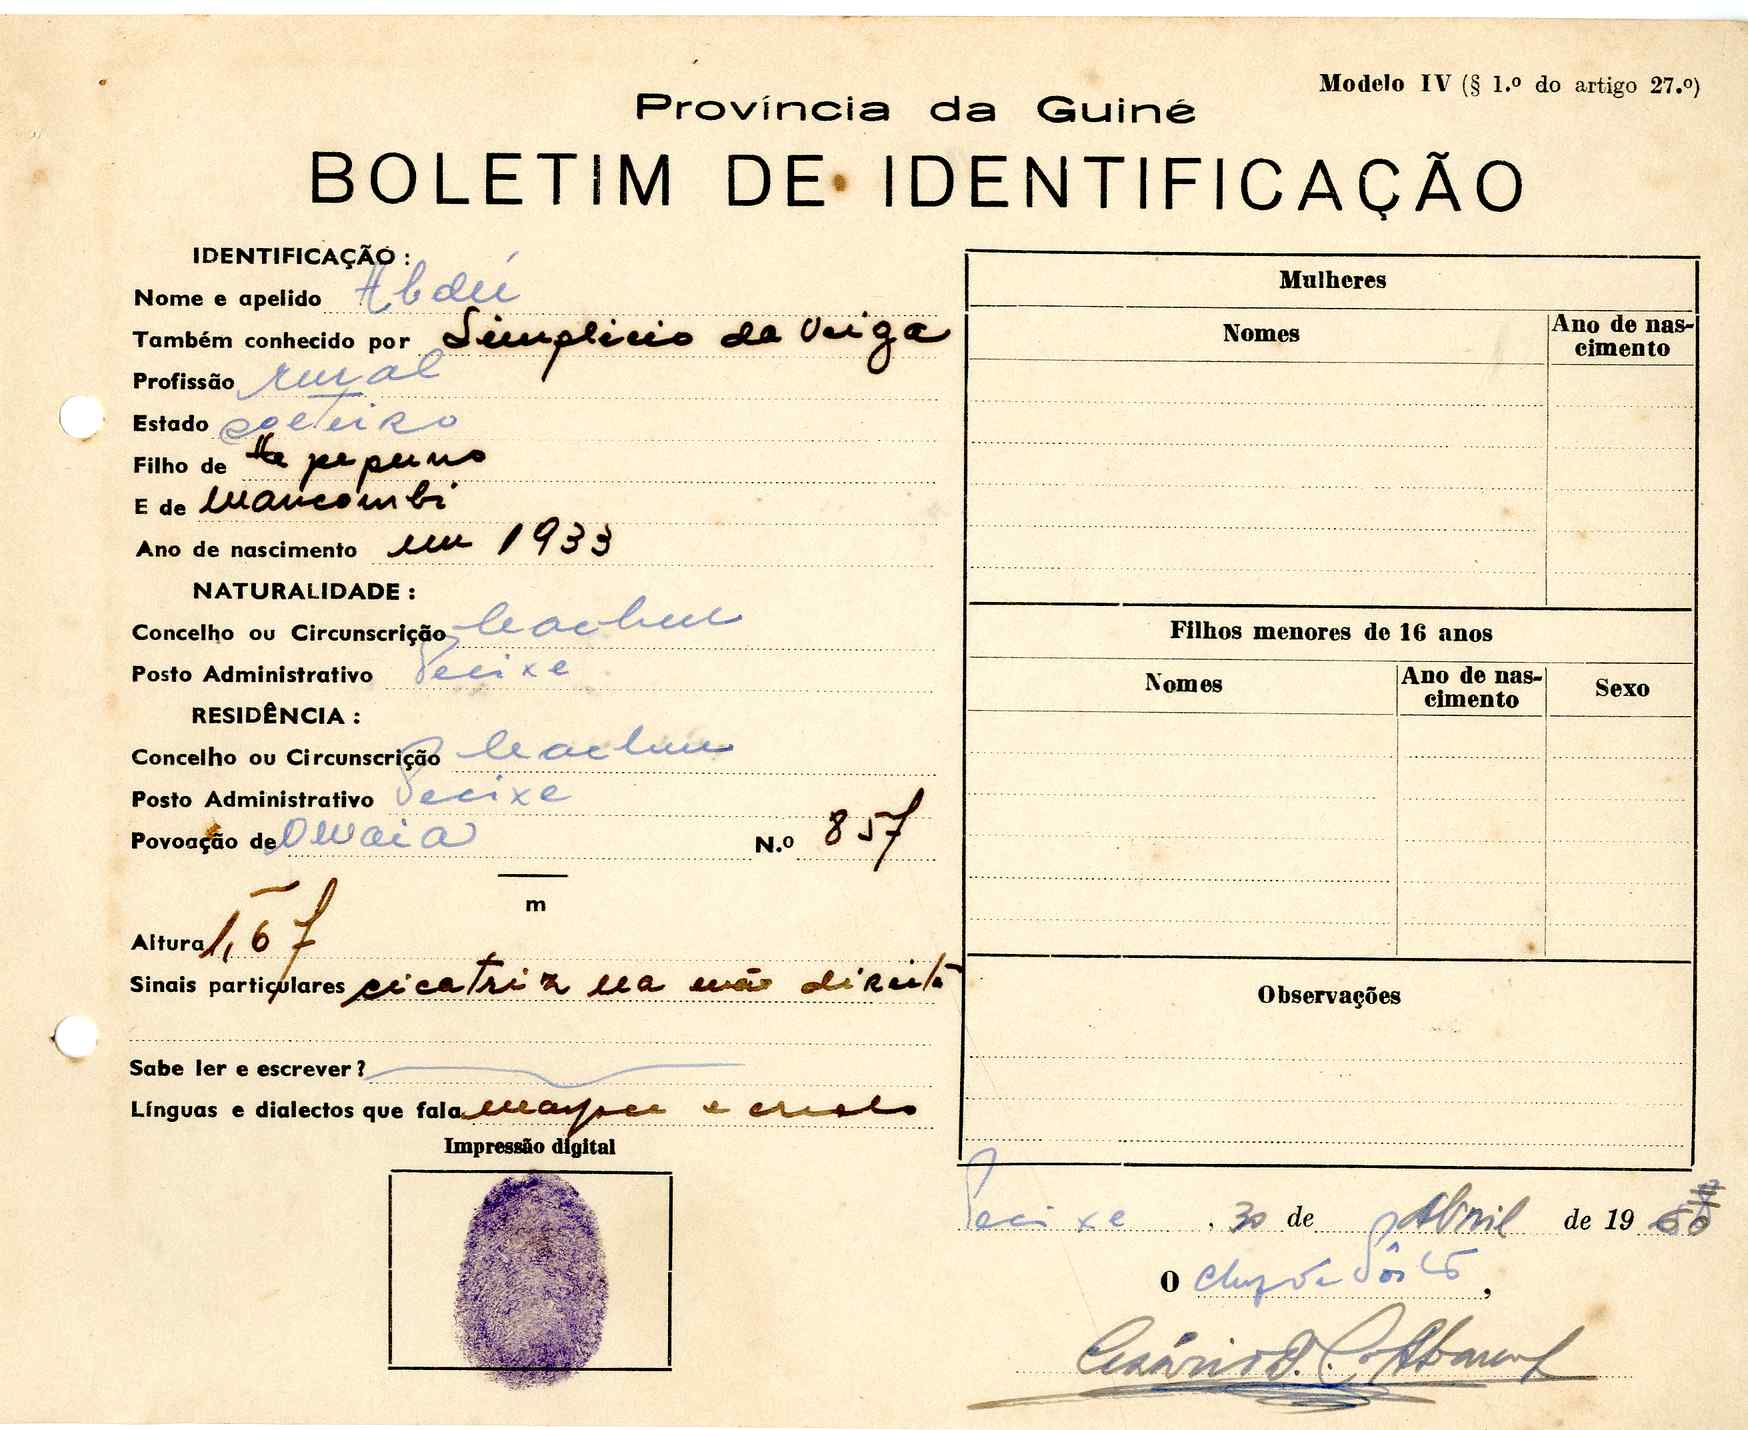 Modelo IV (§ 1.º do artigo 27.º)
Província da Guiné
BOLETIM DE IDENTIFICAÇÃO
IDENTIFICAÇÃO :
Nome e apelido Abdú
Também conhecido por Simplicio da Veiga
Profissão rural
Estado solteiro
Filho de
E de Mancombi
Ano de nascimento em 1933
NATURALIDADE :
Concelho ou Circunscrição Cacheu
Posto Administrativo Pecixe
RESIDÊNCIA :
Concelho ou Circunscrição Cacheu
Posto Administrativo Pecixe
Povoação de N.º 857
m
Altura 1,67
Sinais particulares cicatriz na mão direita
Sabe ler e escrever ?
Línguas e dialectos que fala e creolo
Impressão digital
Mulheres
Nomes
Ano de nas-
cimento
Filhos menores de 16 anos
Nomes
Ano de nas-
cimento
Sexo
Observações
Pecixe, 30 de Abril de 19 60
O Chefe de Pôsto,